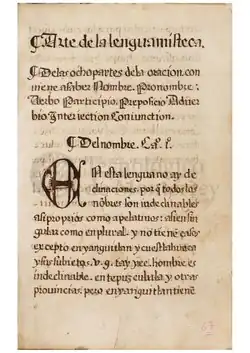 Arte de la lengua misteca.
De las ocho partes de la oracion. con
uiene asaber Nombre. Pronombre.
Verbo Participio. Preposicio Aduer
bio Interiection Coniunction.
Del nombre. Ca. 1.
EN esta lengua no ay de
clinaciones. por q̃ todos los
nõbres son indeclinables
asi propios como apelatiuos: asi en sin
gular como en plural. y no tiene cases
excepto en yanguitlan y cuestlahuaca
y sus subietos. v. g. tay yee. hombre es
indeclinable. en tepuzculula y otras
prouincias. pero en yanguitlan tiene
67